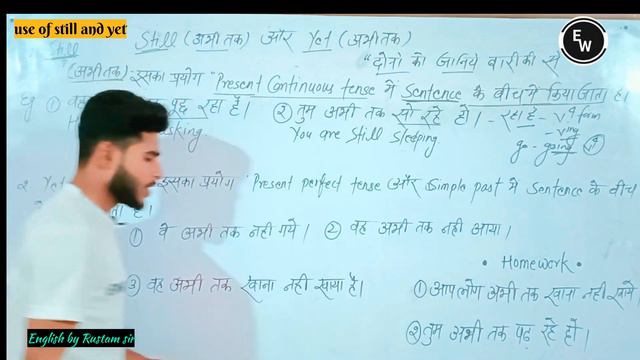 use of still and yet
Still (अभी तक) और Yet (अभीतक)
EW
Still
"दोनो को जानिये बारीकी से
(अभीतक) इसका प्रयोग "Present Continuous tense में Sentence के बीच में किया जाता है।
eg ① वह पूछ रहा है। ② तुम अभी तक सो रहे हो। - रहा है -
asking You are Still Sleeping
go - going
2. Yet इसका प्रयोग "Present perfect tense और Simple past में Sentence के बीच
है।
① वे अभी तक नही गये। ② वह अभी तक नही आया।
• Homework •
③ वह अभी तक खाना नही खाया है। ① आपलोग अभी तक खाना नही खाये
② तुम अभी तक पढ़ रहे हो।
English by Rustam sir